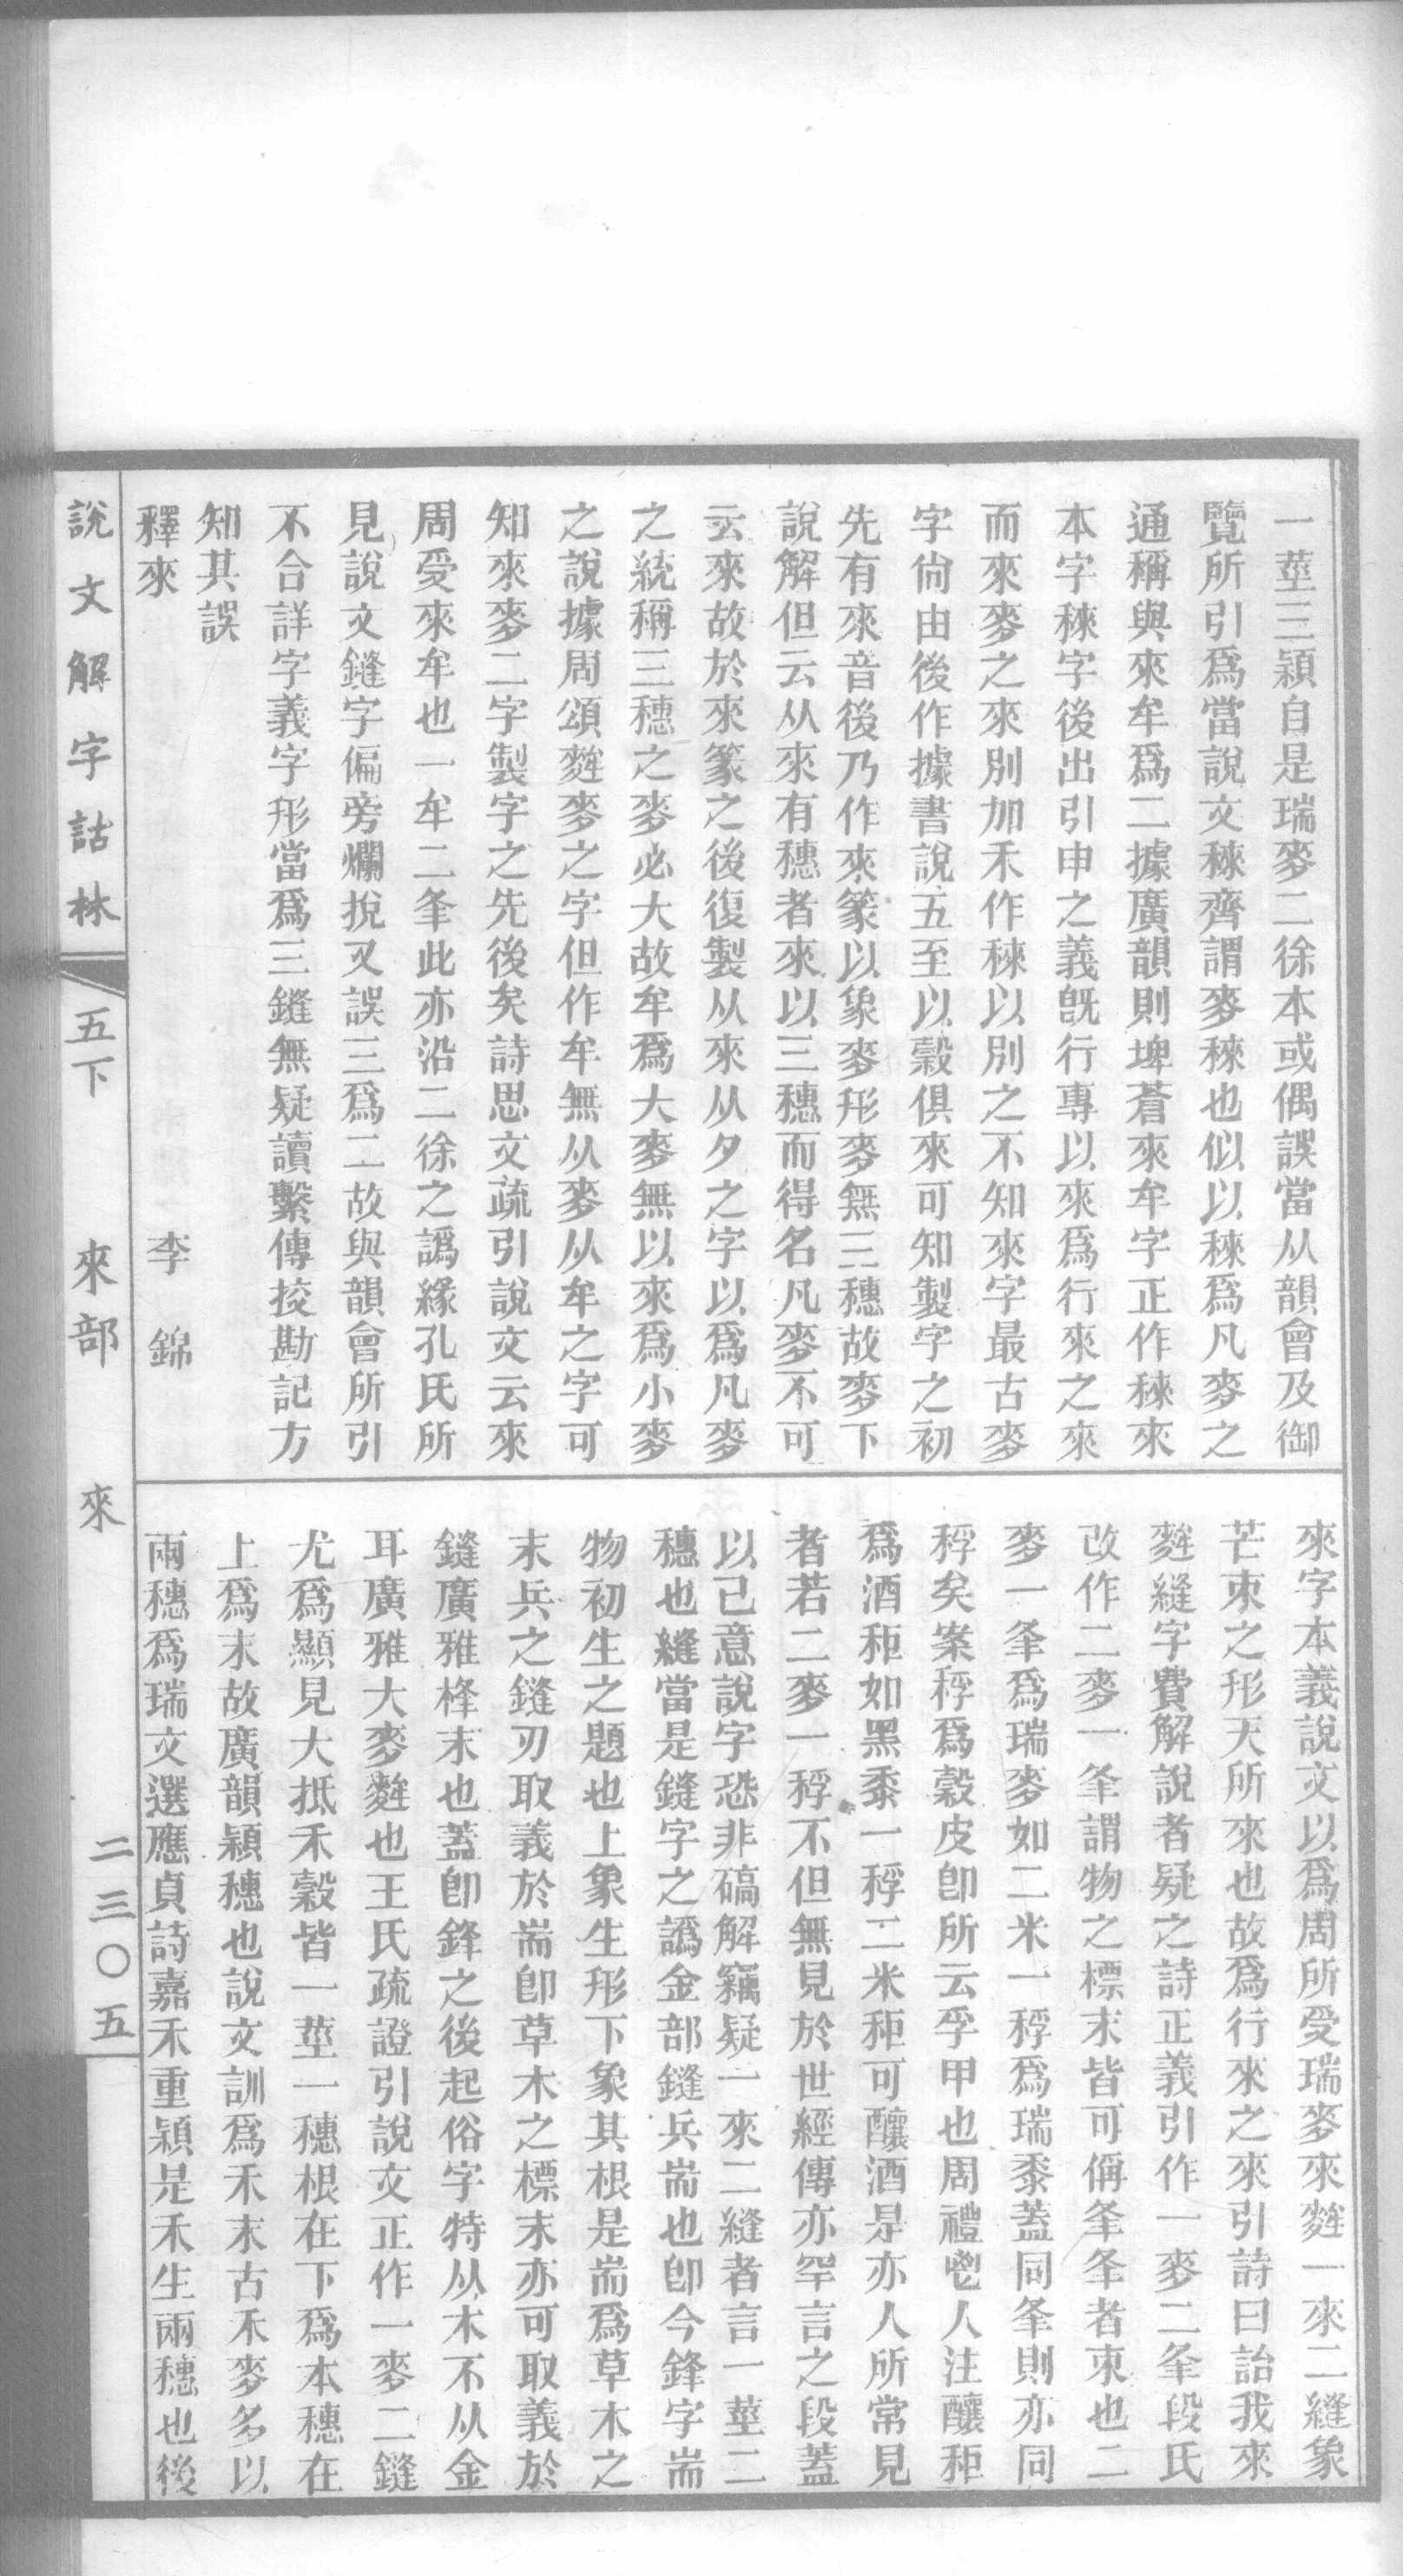 一莖三穎自是瑞麥二徐本或偶誤當从韻會及御
覽所引爲當說文䅘齊謂麥䅘也似以䅘爲凡麥之
通稱與來牟爲二據廣韻則埤蒼來牟字正作䅘來
本字䅘字後出引申之義旣行專以來爲行來之來
而來麥之來別加禾作䅘以別之不知來字最古麥
字尙由後作據書說五至以穀俱來可知製字之初
先有來音後乃作來篆以象麥形麥無三穗故麥下
說解但云从來有穗者來以三穗而得名凡麥不可
云來故於來篆之後復製从來从夕之字以爲凡麥
之統稱三穗之麥必大故牟爲大麥無以來爲小麥
之說據周頌麰麥之字但作牟無从麥从牟之字可
知來麥二字製字之先後矣詩思文疏引說文云來
周受來牟也一牟二夆此亦沿二徐之譌緣孔氏所
見說文鏠字偏旁爛挩又誤三爲二故與韻會所引
不合詳字義字形當爲三鏠無疑讀繫傳挍勘記方
知其誤
釋來 李錦
來字本義說文以爲周所受瑞麥來麰一來二縫象
芒朿之形天所來也故爲行來之來引詩曰詒我來
麰縫字費解說者疑之詩正義引作一麥二夆段氏
改作二麥一夆謂物之標末皆可偁夆夆者朿也二
麥一夆爲瑞麥如二米一稃爲瑞黍蓋同夆則亦同
稃矣案稃爲穀皮卽所云孚甲也周禮鬯人注釀秬
爲酒秬如黑黍一稃二米秬可釀酒是亦人所常見
者若二麥一稃不但無見於世經傳亦罕言之段蓋
以己意說字恐非碻解竊疑一來二縫者言一莖二
穗也縫當是鏠字之譌金部鏠兵耑也卽今鋒字耑
物初生之題也上象生形下象其根是耑爲草木之
末兵之鏠刃取義於耑卽草木之標末亦可取義於
鏠廣雅桻末也蓋卽鋒之後起俗字特从木不从金
耳廣雅大麥麰也王氏疏證引說文正作一麥二鏠
尤爲顯見大抵禾穀皆一莖一穗根在下爲本穗在
上爲末故廣韻穎穗也說文訓爲禾末古禾麥多以
兩穗爲瑞文選應貞詩嘉禾重穎是禾生兩穗也後
說文解字詁林 五下 來部 來 二三〇五